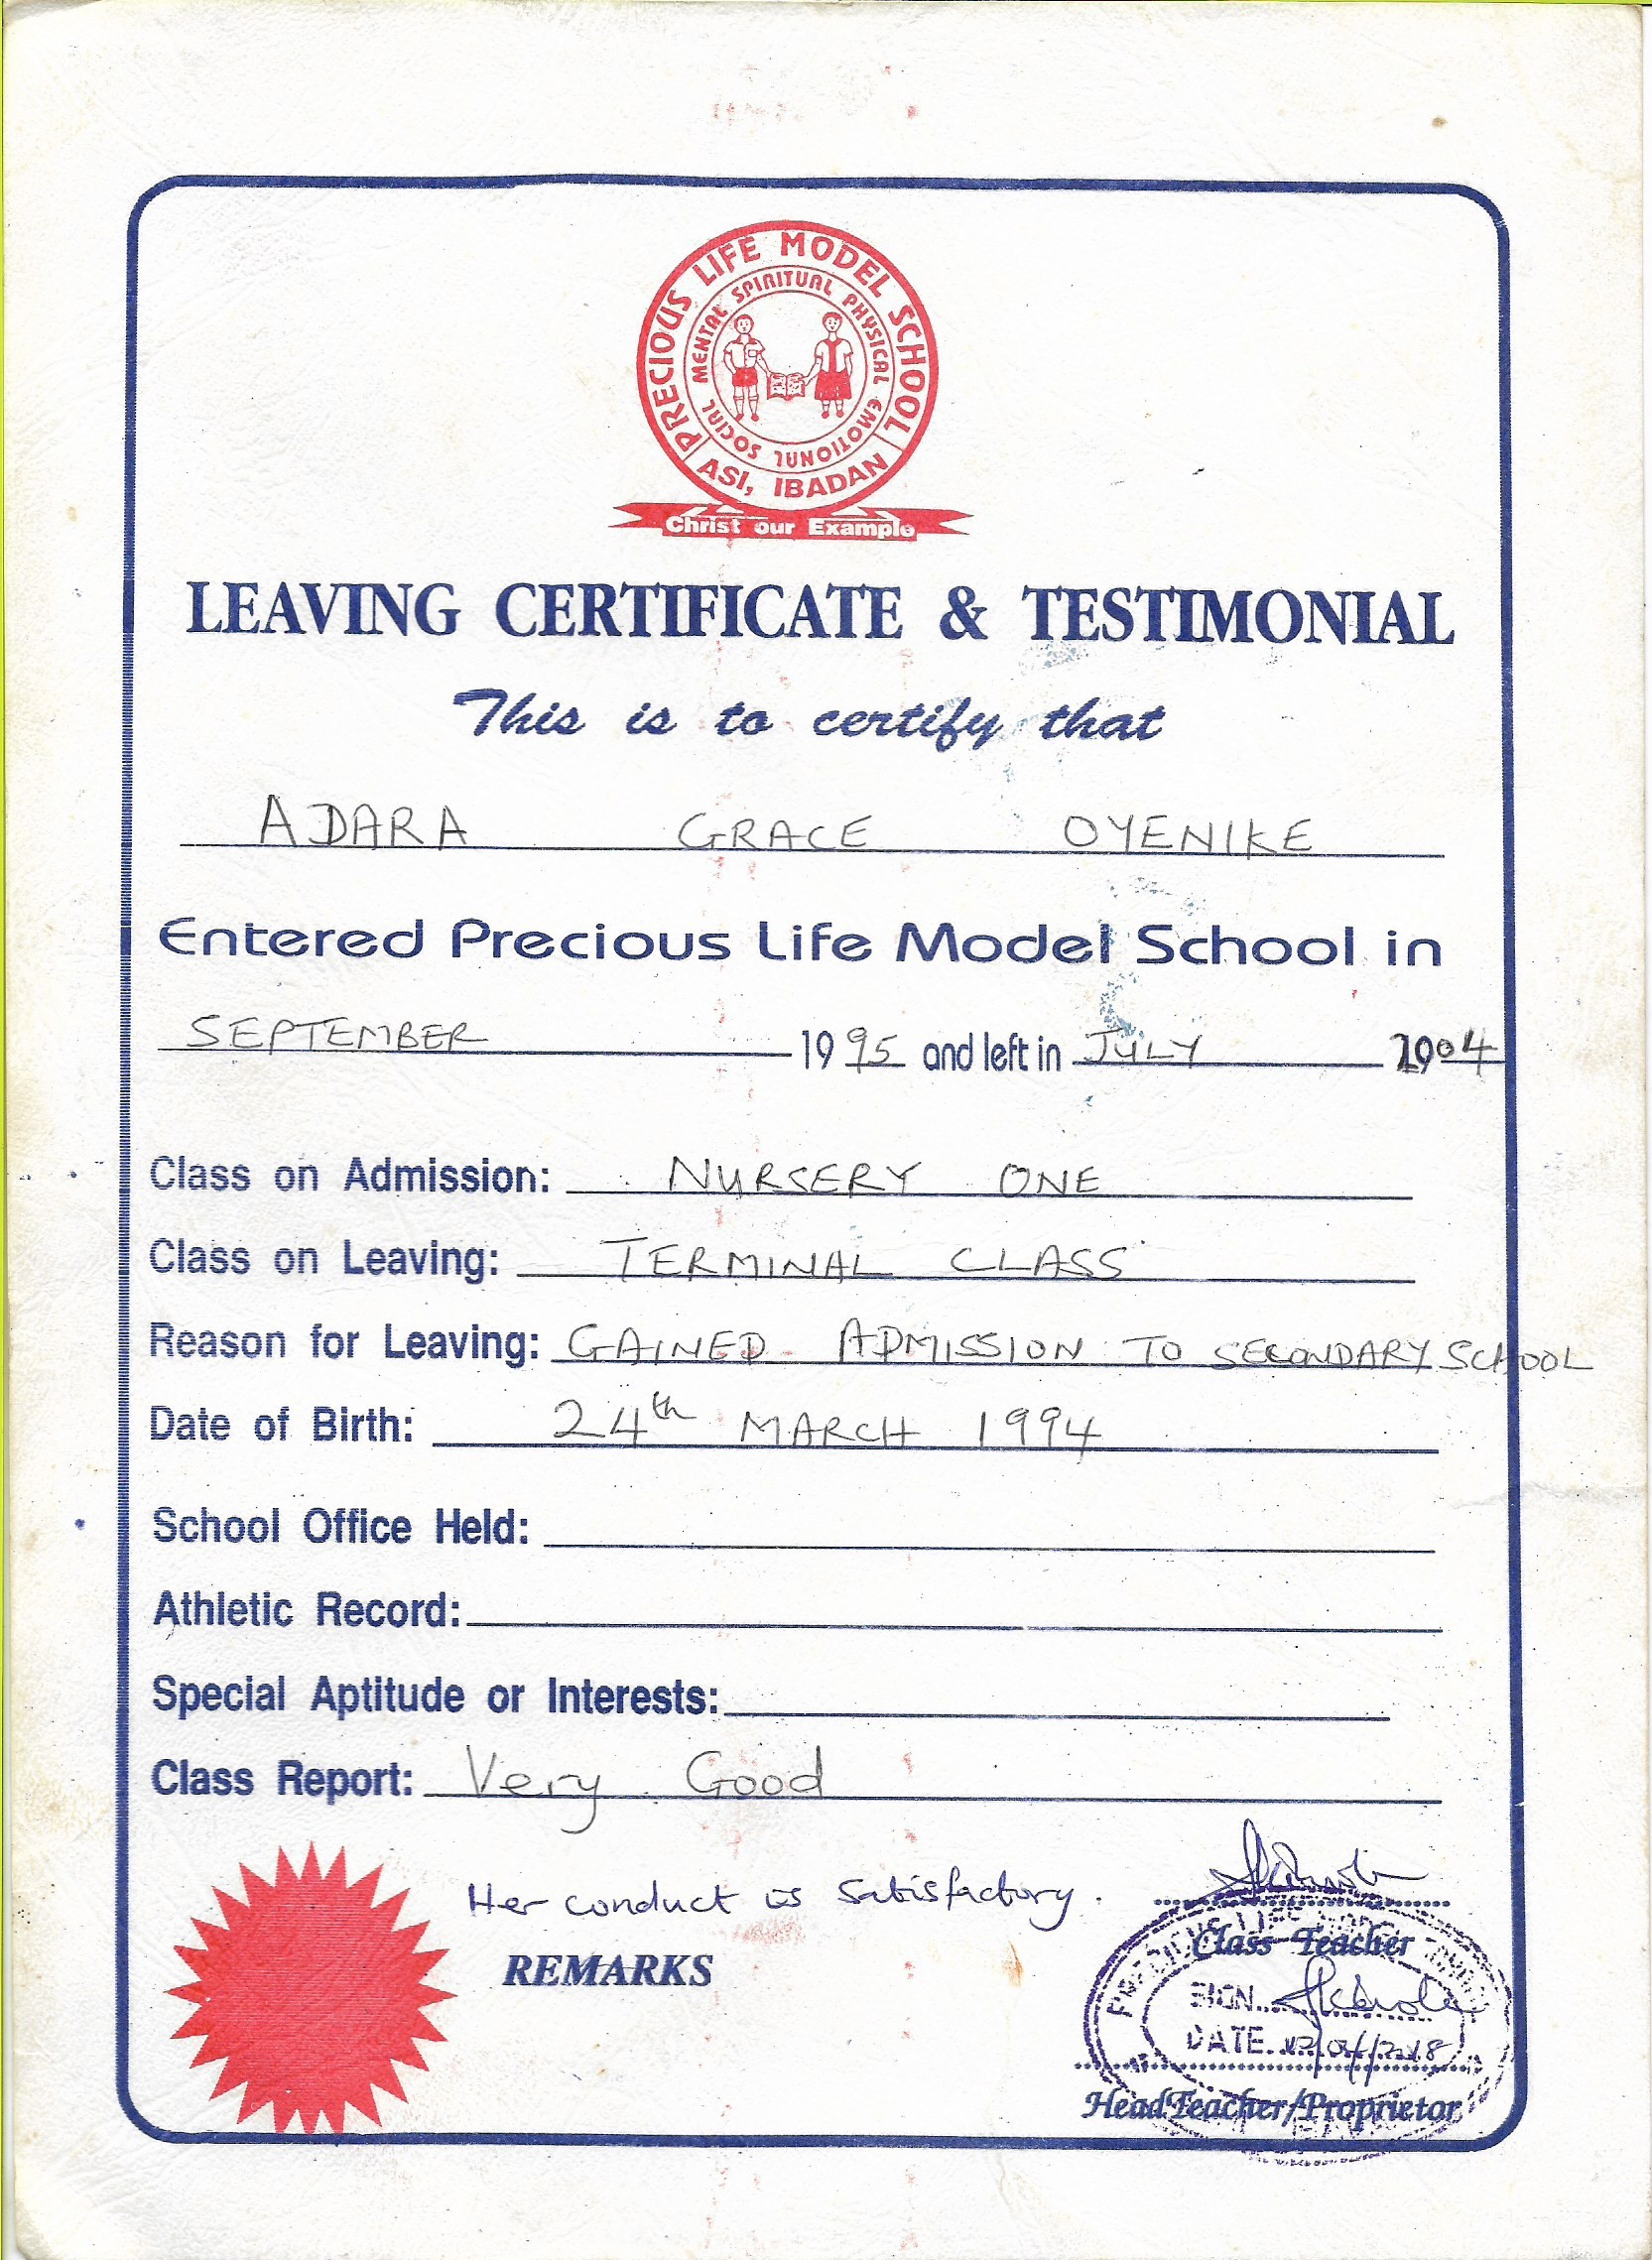 PRECIOUS LIFE MODEL SCHOOL
MENTAL SPIRITUAL PHYSICAL EMOTIONAL SOCIAL
ASI, IBADAN
Christ our Example
LEAVING CERTIFICATE & TESTIMONIAL
This is to certify that
ADARA GRACE OYENIKE
Entered Precious Life Model School in
SEPTEMBER 1995 and left in JULY 2004
Class on Admission: NURSERY ONE
Class on Leaving: TERMINAL CLASS
Reason for Leaving: GAINED ADMISSION TO SECONDARY SCHOOL
Date of Birth: 24th MARCH 1994
School Office Held:
Athletic Record:
Special Aptitude or Interests:
Class Report: Very Good
Her conduct is Satisfactory.
REMARKS
Class Teacher
SIGN
DATE
HeadTeacher/Proprietor